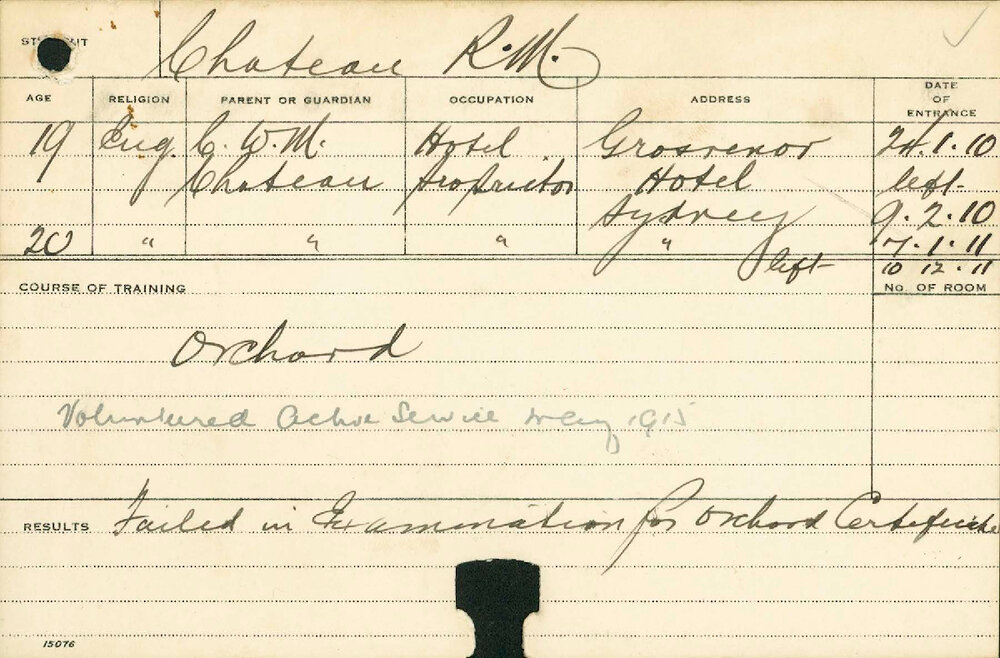 STUDENT Chateau R.M.
AGE RELIGION PARENT OR GUARDIAN OCCUPATION ADDRESS DATE OF ENTRANCE
19 Eng. C. W. M. Hotel Grosvenor 24.1.10
Chateau Proprietor Hotel left
Sydney 9.2.10
20 " " " " 17.1.11
left 10 12.11
COURSE OF TRAINING No. OF ROOM
Orchard
Volunteered Active Service May 1915
RESULTS Failed in Examination for Orchard Certificate
15076